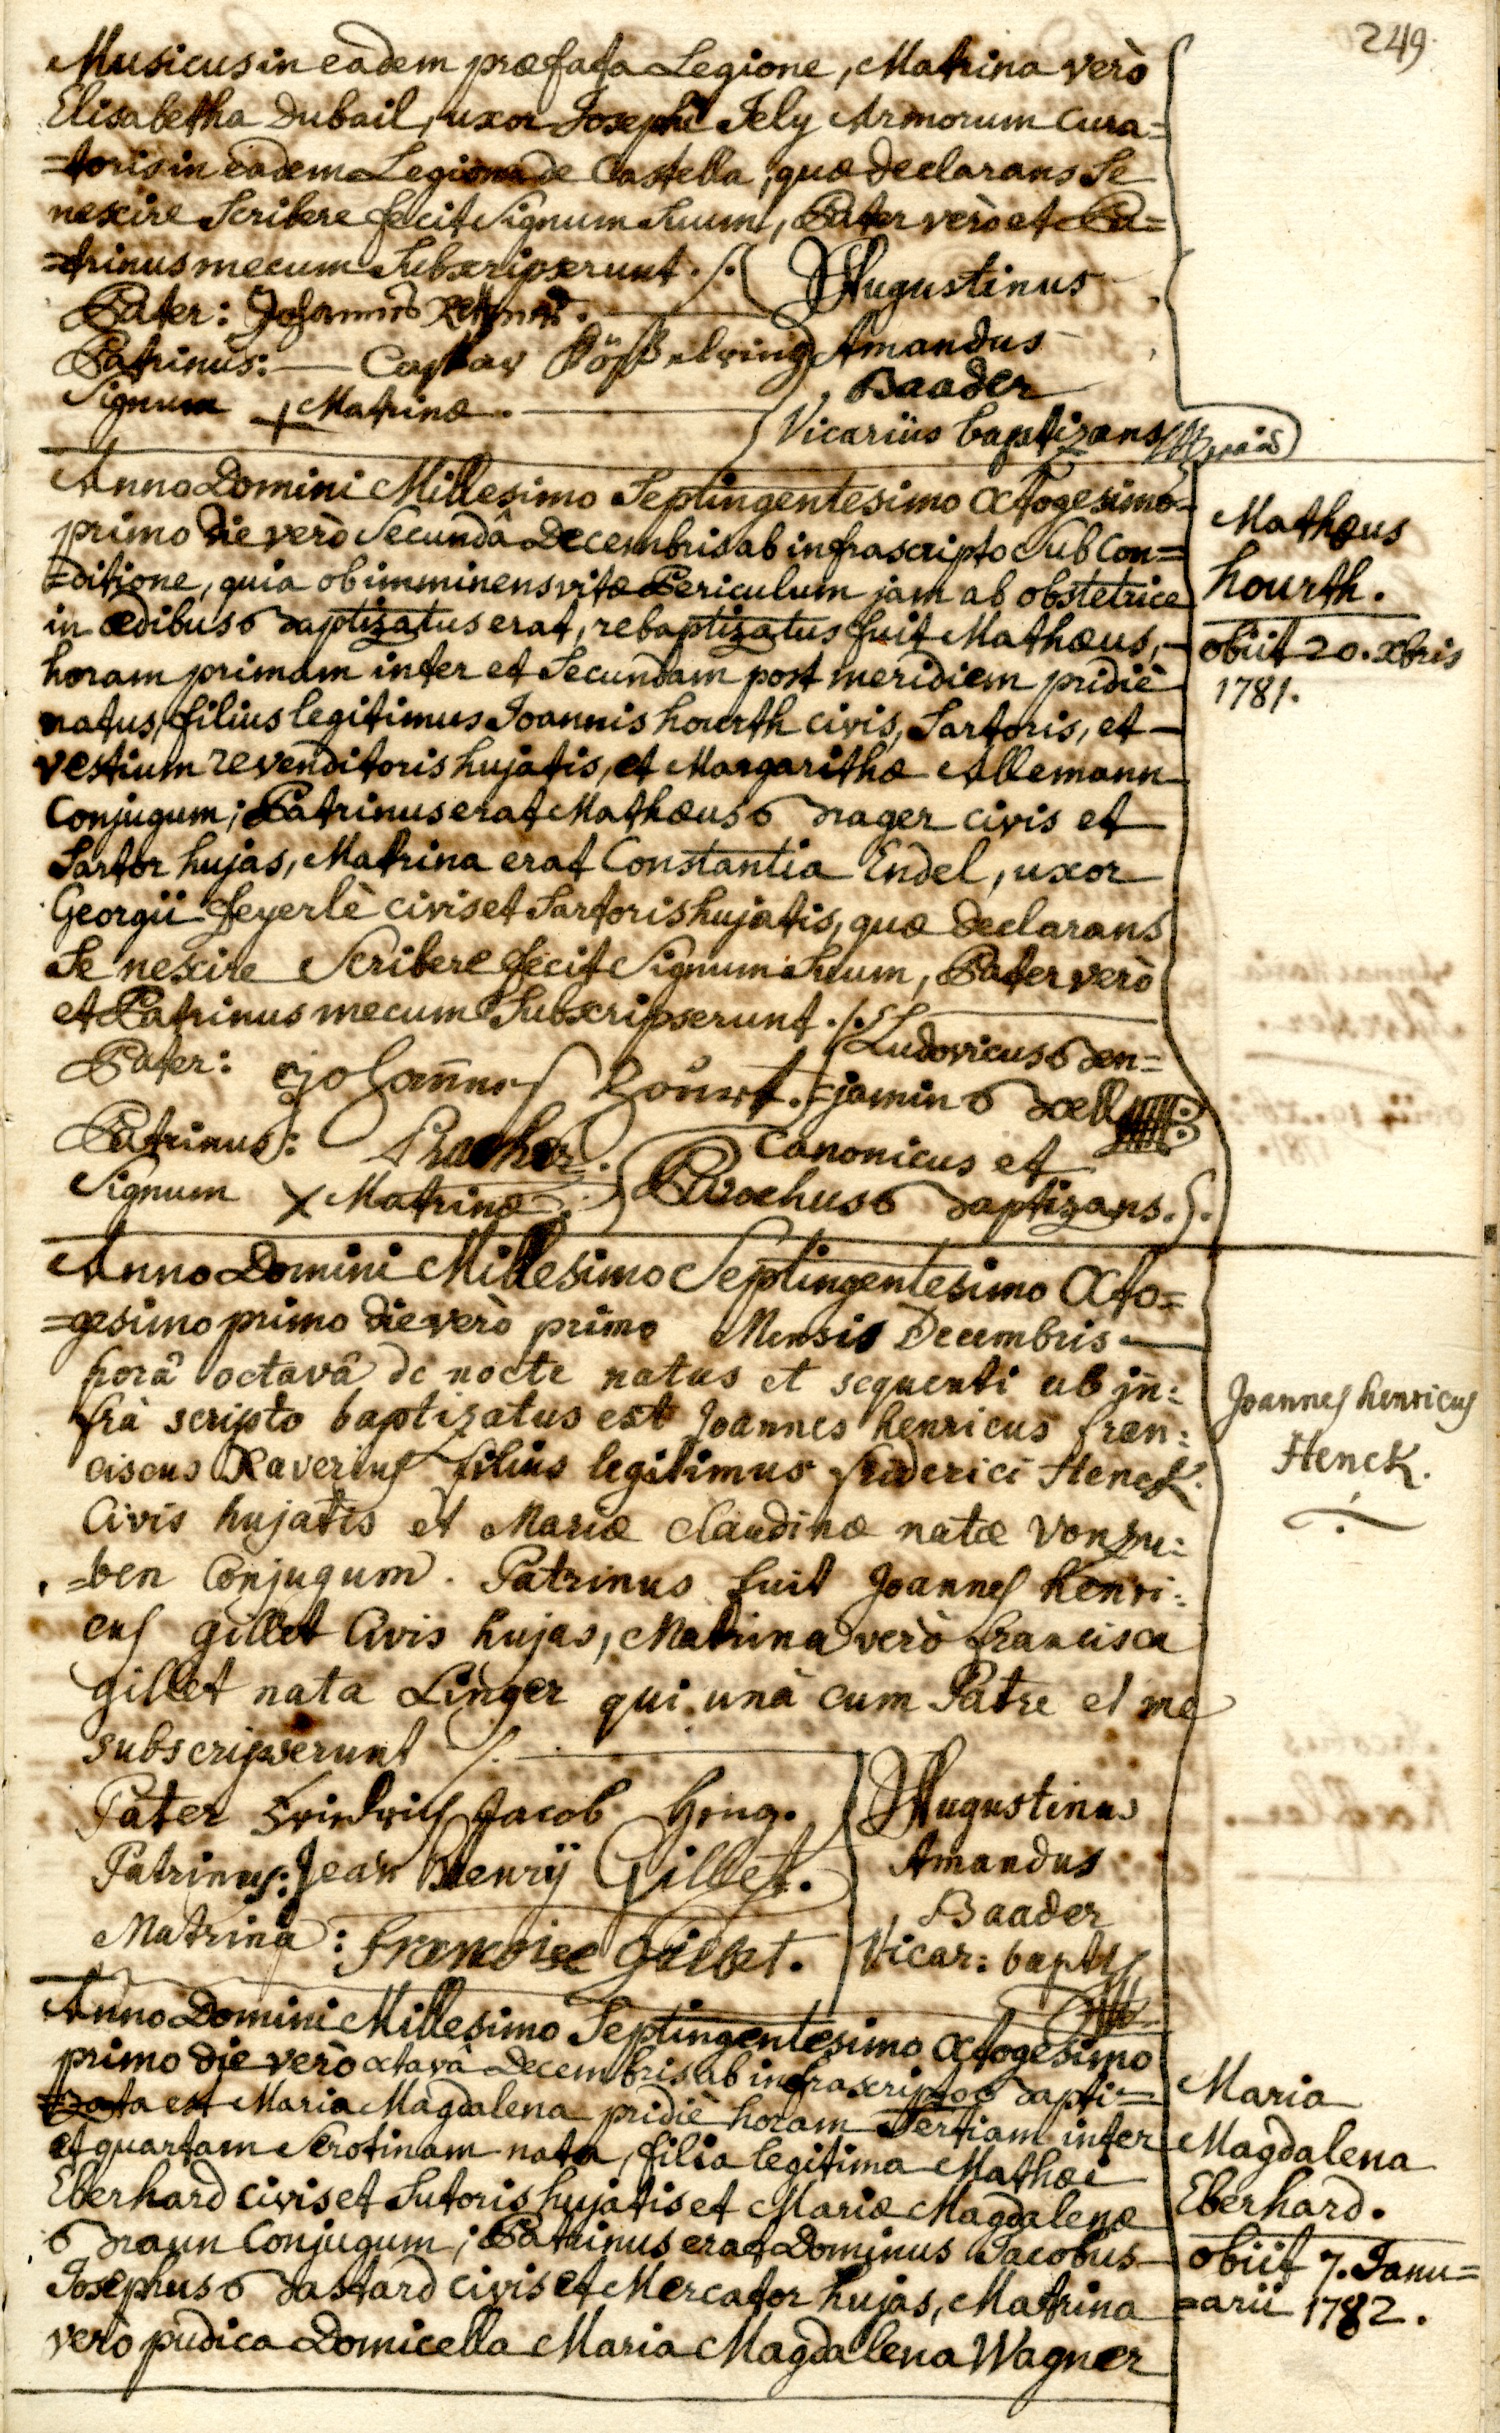 249.
Musicus in eadem præfata Legione, Matrina verò
Elisabetha Dubail, uxor Josephi Jely Armorum Cura=
=toris in eadem Legione de Castella, quæ declarans Se
nescire Scribere fecit Signum Suum, Pater verò et Pa=
=trinus mecum Subscripserunt ./.
Augustinus
Pater: Johannes
Amandus
Patrinus: — Caspar
Baader
Signum + Matrinæ. —
Vicarius baptizans
Anno Domini Millesimo Septingentesimo Octogesimo
primo die verò Secundâ Decembris ab infrascripto Sub Con=
=ditione, quia ob imminens vitæ Periculum jam ab obstetrice
in ædibus Baptizatus erat, rebaptizatus fuit Mathæus, —
horam primam inter et Secundam post meridiem pridiè
natus, filius legitimus Joannis hourth civis, Sartoris, et —
vestium revenditoris hujatis, et Margarithæ Allemann
Conjugum; Patrinus erat Mathæus Brager civis et
Sartor hujas, Matrina erat Constantia Endel, uxor
Georgii feyerlè civis et Sartoris hujatis, quæ declarans
Se nescire Scribere fecit Signum Suum, Pater verò
et Patrinus mecum Subscripserunt ./.
Mathæus
hourth.
obiit 20. Xbris
1781.
Ludovicus Ben=
Pater: Johannes Hourt.
=jamin Boell
Patrinus: Bracher.
Canonicus et
Signum X Matrinæ.
Parochus Baptizans.
Anno Domini Millesimo Septingentesimo Octo=
=gesimo primo die verò primo Mensis Decembris —
horâ octavâ de nocte natus et sequenti ab in:
frà scripto baptizatus est Joannes henricus fran:
ciscus Xaverius filius legitimus friderici Henck.
Civis hujatis et Mariæ Claudinæ natæ Vonzu:
=ben Conjugum. Patrinus fuit Joannes henri:
cus gillet Civis hujas, Matrina verò francisca
gillet nata Linger qui unà cum Patre et me
subscripserunt ./.
Joannes henricus
Henck.
Pater Fridrich Jacob Heng.
Augustinus
Patrinus: Jean Henrÿ Gillet.
Amandus
Baader
Matrina: francoise gillet.
Vicar: bapts
Anno Domini Millesimo Septingentesimo Octogesimo
primo die verò octavâ Decembris ab infrascripto Bapti=
=zata est Maria Magdalena pridiè horam Tertiam inter
et quartam Serotinam nata, filia legitima Mathæi
Eberhard civis et Sutoris hujatis et Mariæ Magdalenæ
Braun Conjugum; Patrinus erat Dominus Jacobus
Josephus Bastard civis et Mercator hujas, Matrina
verò pudica Domicella Maria Magdalena Wagner
Maria
Magdalena
Eberhard.
obiit 7. Janu=
=arii 1782.